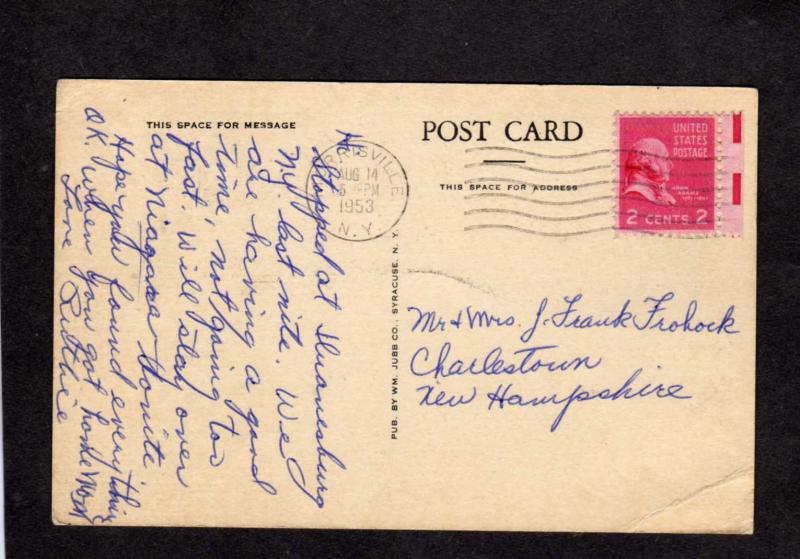 THIS SPACE FOR MESSAGE
Hi
Stopped at Duanesburg
N.Y. last nite. We
are having a good
time, not going too
fast. Will stay over
at Niagara tonite
Hope you found everything
OK. when you got home
Love
Ruthie
PUB. BY WM. JUBB CO., SYRACUSE, N. Y.
POST CARD
THIS SPACE FOR ADDRESS
RRISVILLE
AUG 14
PM
1953
N.Y.
UNITED
STATES
POSTAGE
JOHN
ADAMS
2 CENTS 2
Mr & Mrs. J. Frank Frohock
Charlestown
New Hampshire